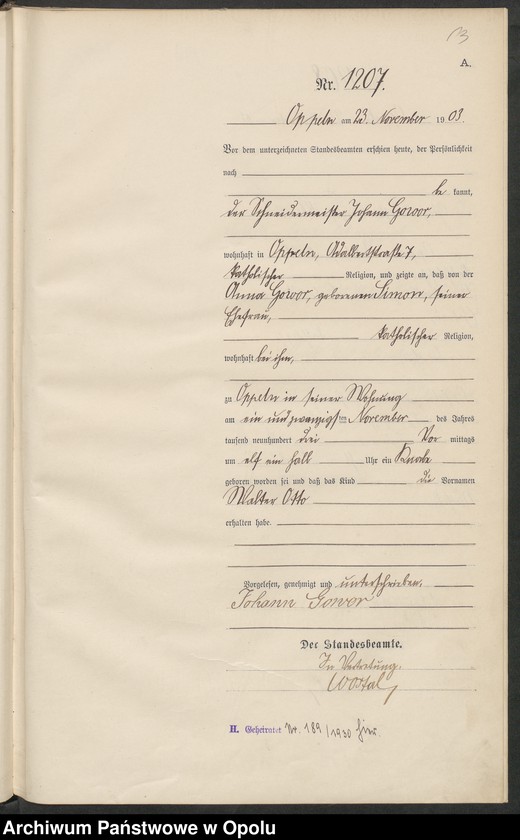 13
A.
Nr. 1207.
Oppeln am 23. November 1903.
Vor dem unterzeichneten Standesbeamten erschien heute, der Persönlichkeit
nach
be kannt,
der Schneidermeister Johann Gowor,
wohnhaft in Oppeln, Adalbertstraße 7,
katholischer Religion, und zeigte an, daß von der
Anna Gowor, geborenen Simon, seiner
Ehefrau,
katholischer Religion,
wohnhaft bei ihm,
zu Oppeln in seiner Wohnung
am ein und zwanzigsten November des Jahres
tausend neunhundert drei Vor mittags
um elf ein halb Uhr ein Knabe
geboren worden sei und daß das Kind die Vornamen
Walter Otto
erhalten habe.
Vorgelesen, genehmigt und unterschrieben.
Johann Gowor
Der Standesbeamte.
In Vertretung.
Wostal
H. Geheiratet Nr. 189/1930 hier.
Archiwum Państwowe w Opolu